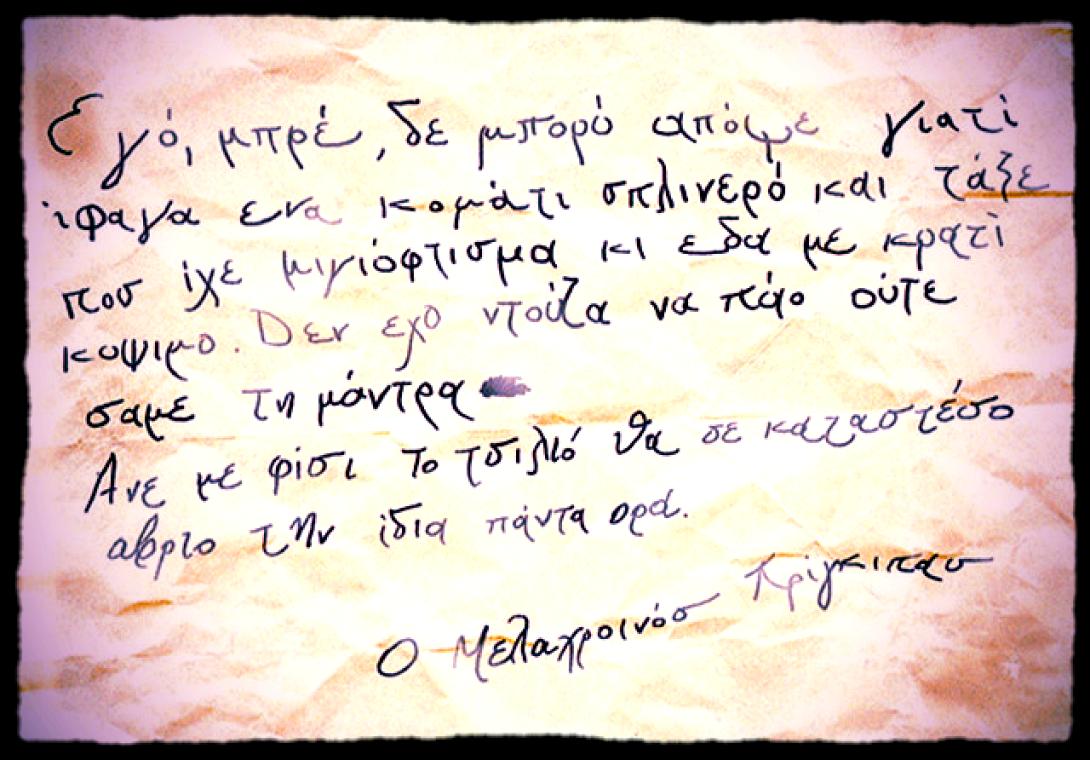 Εγό, μπρέ, δε μπορό απόψε γιατί
ιφαγα ενα κομάτι σπλινερό και τάξε
που ίχε μιγιόφτισμα κι εδα με κρατί
κοψιμο. Δεν εχο ντούζα να πάο ούτε
σαμε τη μάντρα
Ανε με φίσι το τσιλιό θα σε καταστέσο
αβριο την ίδια πάντα ορα.
Ο Μελαχροινόσ Πρίγκιπασ